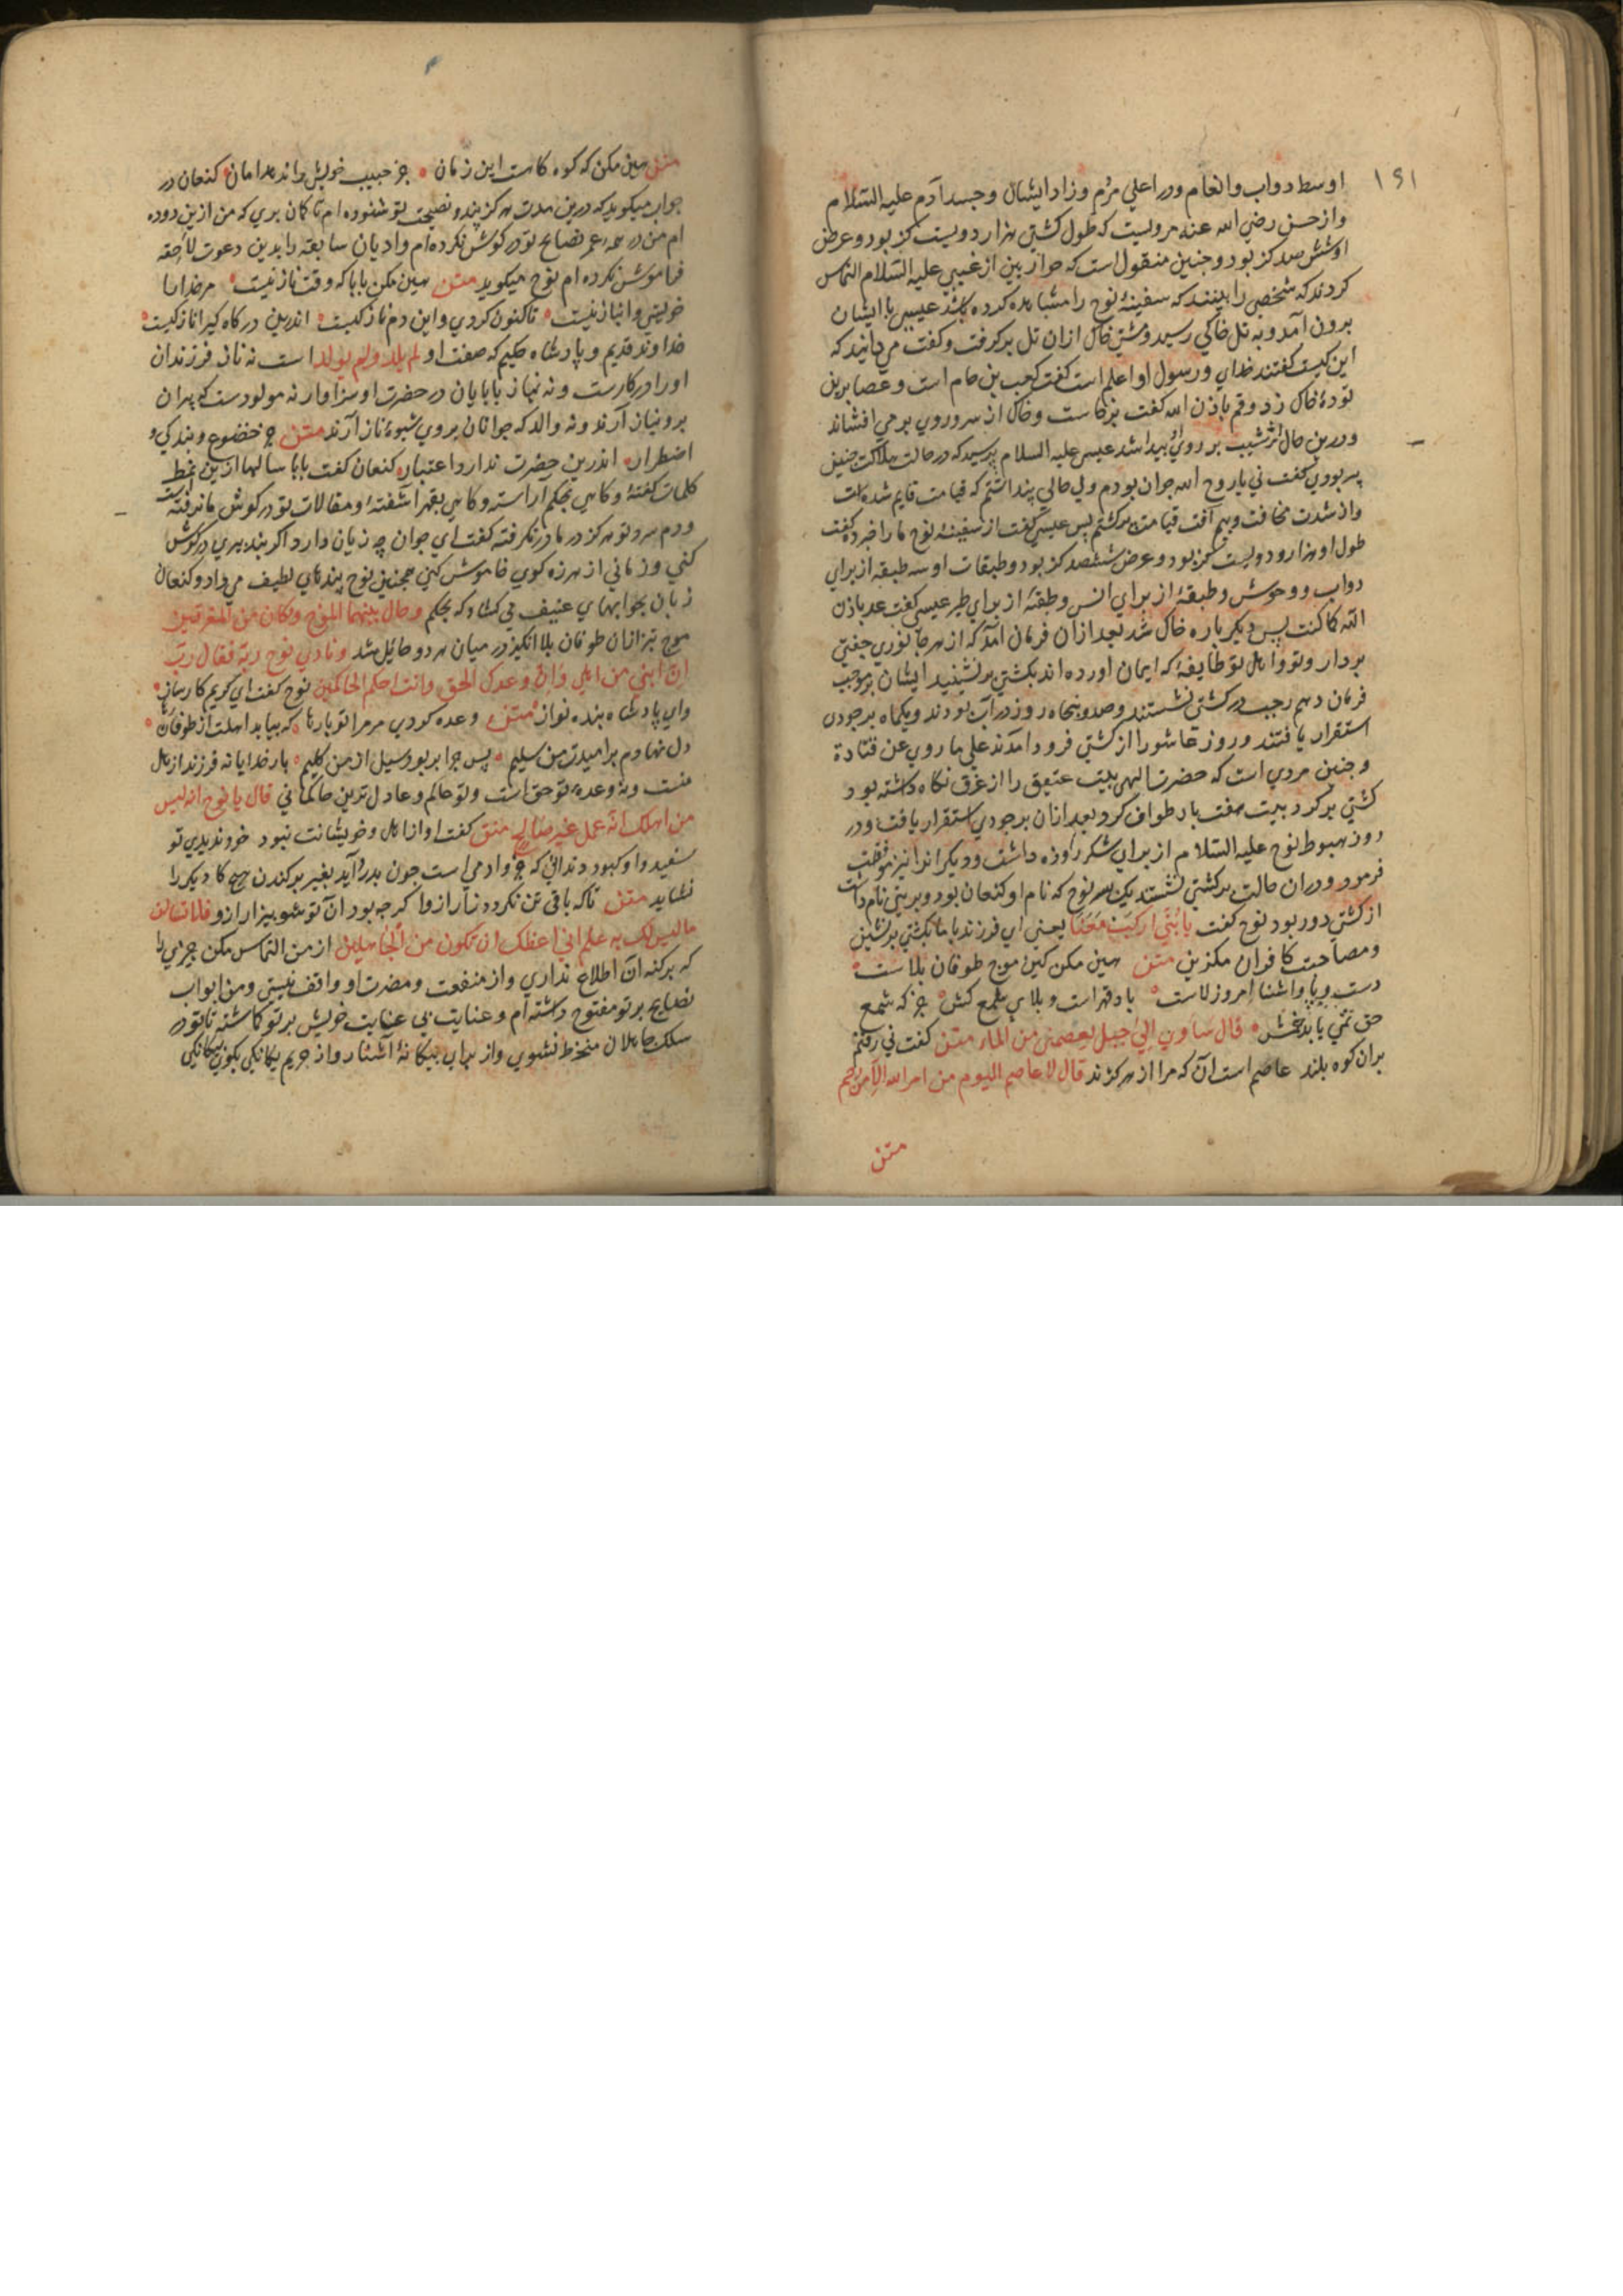 ۱۵۱
اوسط دواب وانعام ودر اعلی مردم وزاد ایشان وجسد آدم علیه السّلام
واز حسن رضي الله عنه مرویست که طول کشتی هزار دویست کز بود وعرض
او شش صد کز بود وجنین منقول است که حواریین از عیسی علیه السّلام التماس
کردند که شخصی را ببینند که سفینۀ نوح را مشاهده کرده باشد عیسی با ایشان
برون آمد وبه تل خاکي رسید ومشتی خاک ازان تل برکرفت وکفت می دانید که
این کیست کفتند خدای ورسول او اعلم است کفت کعب بن حام است وعصا برین
تودۀ خاک زد وقم باذن الله کفت برخاست وخاک از سر وروی بر می افشاند
ودرین حال اثر شیب بر روی او پیدا شد عیسی علیه السلام پرسید که در حالت هلاکت چنین
پیر بودی کفت نی یا روح الله جوان بودم ولی حالی پنداشتم که قیامت قایم شده است
واز شدت مخافت وبیم آفت قیامت پیر کشتم پس عیسی کفت از سفینۀ نوح ما را خبر ده کفت
طول او هزار ودویست کز بود وعرض ششصد کز بود وطبقات او سه طبقه از برای
دواب ووحوش وطبقۀ از برای انس وطبقۀ از برای طیر عیسی کفت عد باذن
الله کما کنت پس دیکر باره خاک شد بعد ازان فرمان آمد که از هر جانوری جفتی
بردار وتو واهل تو طایفۀ که ایمان اورده اند بکشتی بر نشینید ایشان بر موجب
فرمان دهم رجب در کشتی نشستند وصد وپنجاه روز در آب بودند ویکماه بر جودی
استقرار یافتند وروز عاشورا از کشتی فرود آمدند علی ما روي عن قتادة
وجنین مروي است که حضرت الهی بیت عتیق را از غرق نکاه داشته بود
کشتی بر کرد بیت هفت بار طواف کرد بعد ازان بر جودی استقرار یافت ودر
روز هبوط نوح علیه السّلام از برای شکر روزه داشت ودیکرانرا نیز موافقت
فرمود ودران حالت بر کشتی نشستند یک پسر نوح که نام او کنعان بود وبریتی نام داشت
از کشتی دور بود نوح کفت یا بُنَيَّ ارکَبْ مَعَنَا یعنی ای فرزند با ما بکشتی بر نشین
ومصاحبت کافران مکزین متن هین مکن کین موج طوفان بلاست
دست وپا واشنا امروز لاست باد قهر است وبلای شمع کش جز که شمع
حق نمی پاید خمش قال ساوي الی جبل یعصمني من الماء متن کفت نی رفتم
بران کوه بلند عاصم است آن که مرا از هر کزند قال لا عاصم الیوم من امر الله الا من رحم
متن
متن هین مکن که کوه کاهست این زمان جز حبیب خویش را ندهد امان کنعان در
جواب میکوید که درین مدت هرکز پند ونصیحت تو شنوده ام تا کمان بری که من ازین دوده
ام من در همه عمر نصایح تو در کوش نکرده ام وادیان سابقه را بدین دعوت لاحقه
فراموش نکرده ام نوح میکوید متن هین مکن بابا که وقت ناز نیست مر خدا را
خویشی وانباز نیست تاکنون کردی واین دم نازکیست اندرین درکاه کیرا ناز کیست
خداوند قدیم وپادشاه حکیم که صفت او لم یلد ولم یولد است نه ناز فرزندان
او را در کارست ونه نیاز بابایان در حضرت او سزاوار نه مولودست که پیران
برو نیاز آرند ونه والد که جوانان بروی شیوۀ ناز آرند متن جز خضوع وبندکی و
اضطرار اندرین حضرت ندارد اعتبار کنعان کفت بابا سالها ازین نمط
کلمات کفتۀ وکاهی بحکم آراسته وکاهی بقهر آشفتۀ ومقالات تو در کوش ما نرفته
ودم سرد تو هرکز در ما در نکرفته کفت ای جوان چه زیان دارد اکر پند پدری در کوش
کنی وزمانی از هرزه کوی خاموش کنی همچنین نوح پندهای لطیف می داد وکنعان
زبان بجوابهای عنیف می کشاد که بحکم وحال بینهما الموج وکان من المغرقین
موج تیز ازان طوفان بلا انکیز در میان هر دو حایل شد ونادی نوح ربه فقال ربّ
انّ ابني من اهلي وانّ وعدک الحق وانت احکم الحاکمین نوح کفت ای کریم کارساز
وای پادشاه بنده نواز متن وعده کردی مر مرا تو بارها که بیابد اهلت از طوفان رها
دل نهادم بر امیدت من سلیم پس چرا بربود سیل از من کلیم بار خدایا نه فرزند از اهل
منست ونه وعده تو حق است وتو حاکم وعادل ترین حاکمانی قال یا نوح انه لیس
من اهلک انّه عمل غیر صالح متن کفت او از اهل وخویشانت نبود خود ندیدی تو
سفیدی او کبود دندانی که جزو ادمی است جون بدرد آید بغیر برکندن هیچ کار دیکر را
نشاید متن تاکه باقی تن نکردد زار ازو اکرچه بود آن تو شو بیزار ازو فلا تسألن
ما لیس لک به علم انی اعظک ان تکون من الجاهلین از من التماس مکن چیزی را
که بر کنه آن اطلاع نداری واز منفعت ومضرت او واقف نیستی ومن ابواب
نصایح بر تو مفتوح داشته ام وعنایت بی عنایت خویش بر تو کماشته تا تو در
سلک جاهلان منخرط نشوی واز بهر بیکانۀ آشنا رو از حریم یکانکی بکوی بیکانکی